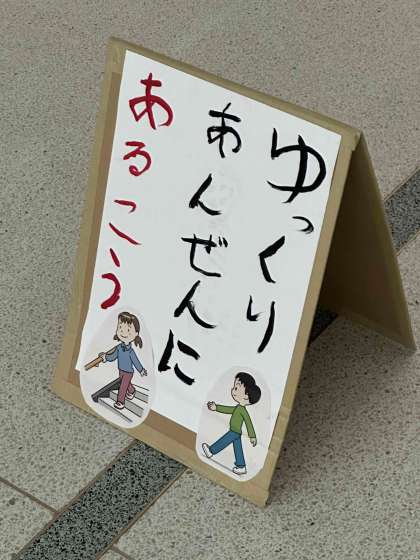 ゆっくり
あんぜんに
あるこう